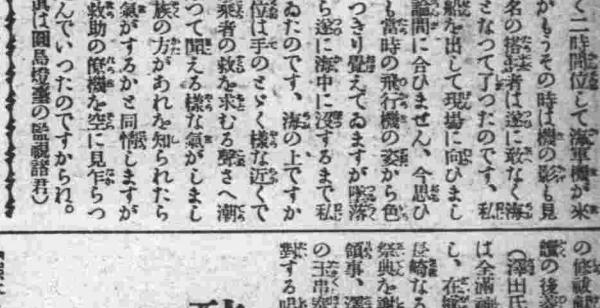 て二時間位して海軍機が米
かもうその時は機の影も見
名の搭乗者は遂に敢なく海
となつて了つたのです、私
船を出して現場に向ひまし
論間に合ひません、今思ひ
も當時の飛行機の姿から色
つきり覺えてゐますが墜落
ら遂に海中に沒するまで私
ゐたのです、海の上ですか
位は手のとゞく樣な近くで
乘者の救を求むる聲さへ潮
つて聞える樣な氣がしまし
族の方があれを知られたら
氣がするかと同情しますが
救助の僚機を空に見乍らつ
んでいつたのですからね。
眞は鬪島燈臺の監視諸君）
の修祓
讀の後
（澤田
は全滿
し、在
長崎なる
祭典を
領事、澤
の玉串
對する